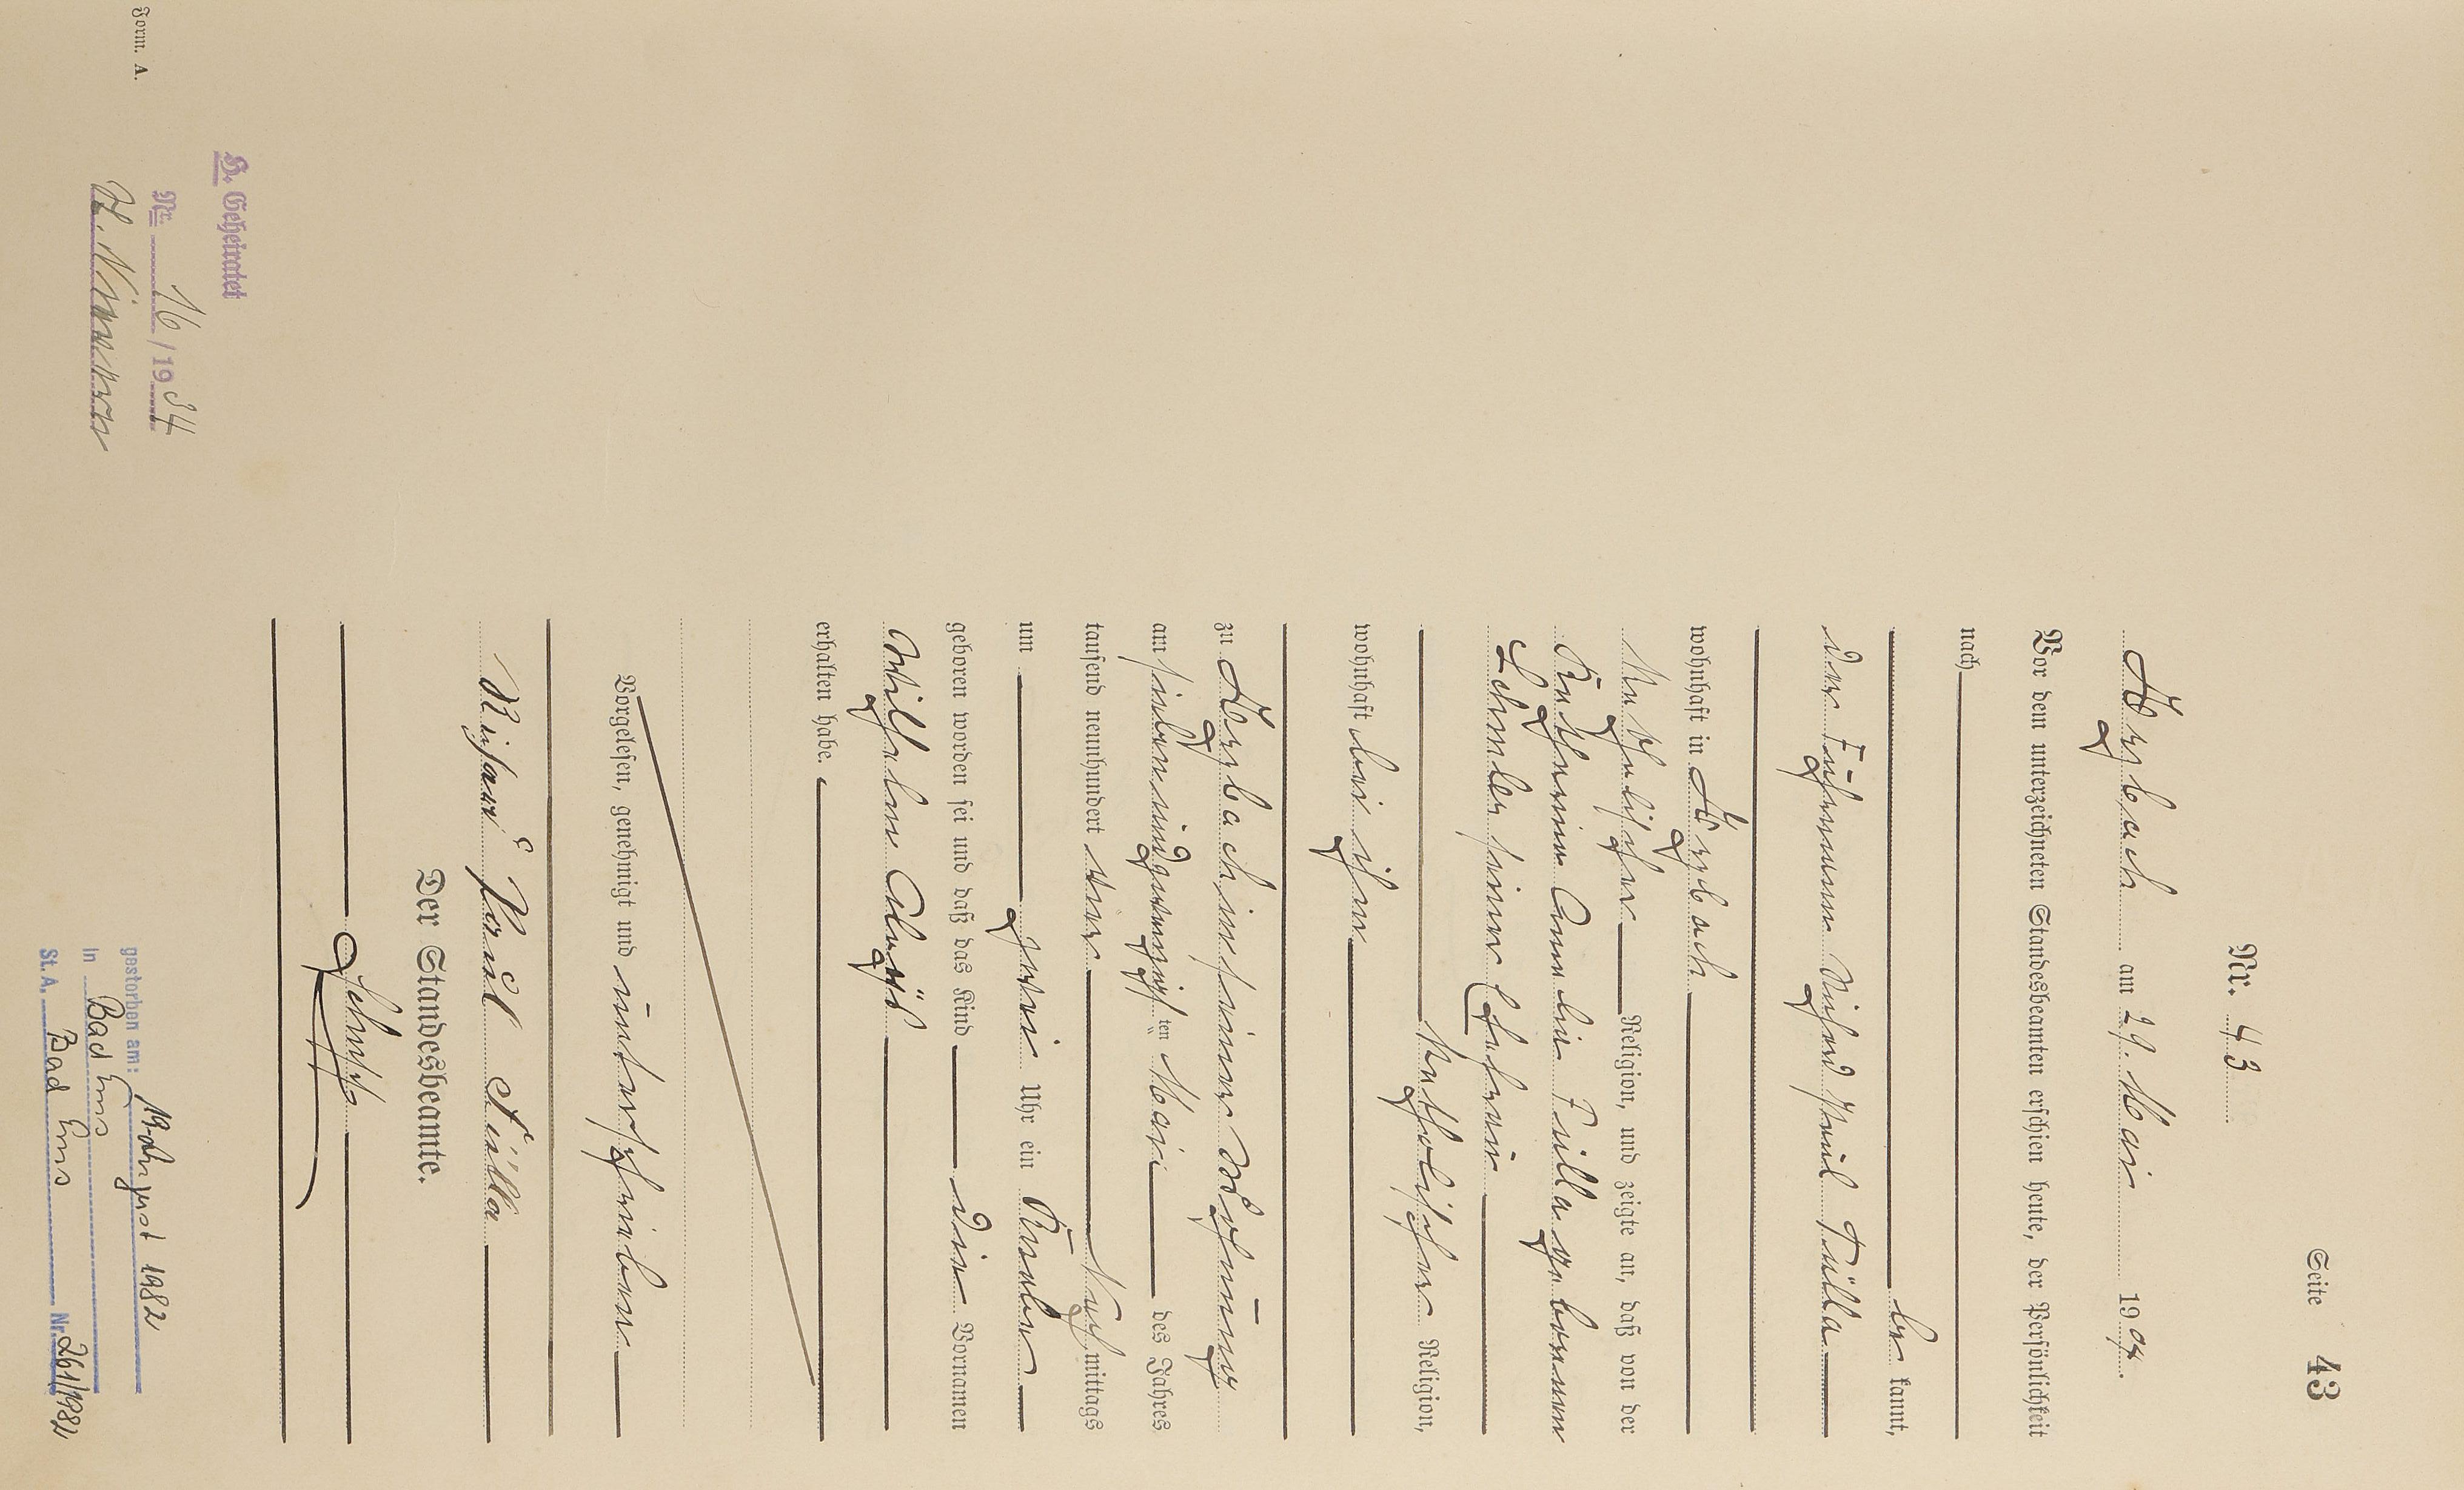 Seite 43
Nr. 43
Arzbach am 29. Mai 1904.
Vor dem unterzeichneten Standesbeamten erschien heute, der Persönlichkeit
nach
be kannt,
der Fuhrmann Richard Paul Fülla
wohnhaft in Arzbach
katholischer Religion, und zeigte an, daß von der
Katharina Amalia Fülla geborenen
Lehmler seiner Ehefrau
katholischer Religion,
wohnhaft bei ihm
zu Arzbach in seiner Wohnung
am siebenundzwanzigsten Mai des Jahres
tausend neunhundert vier Nachmittags
um zwei Uhr ein Knabe
geboren worden sei und daß das Kind die Vornamen
Wilhelm Aloys
erhalten habe.
Vorgelesen, genehmigt und unterschrieben
Richard Paul Fülla
Der Standesbeamte.
H. Geheiratet
Nr. 16/1934
Form. A.
gestorben am: 19. August 1982
in Bad Ems
St. A. Bad Ems Nr. 261/1982